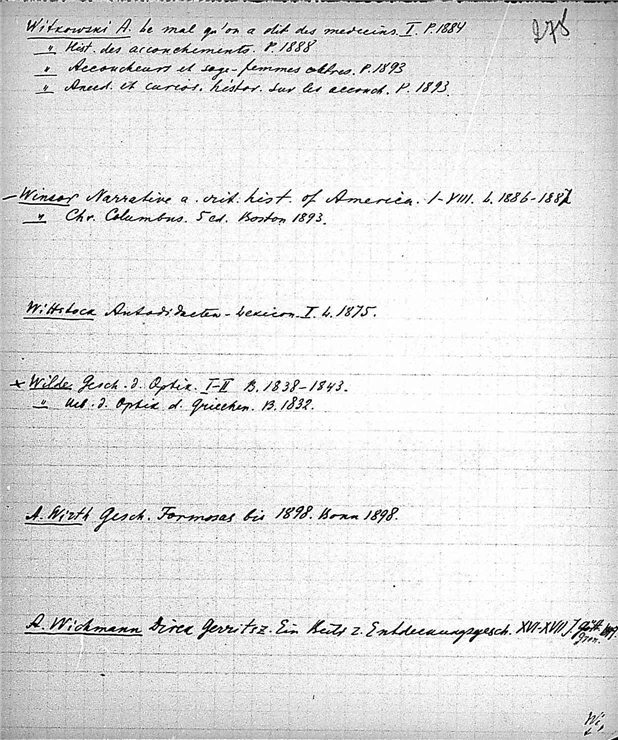 278
Witkowski A. Le mal qu'on a dit des medecins. I. P. 1884
" Hist. des accouchements. P. 1888
" Accoucheurs et sage-femmes celèbres. P. 1893
" Anecd. et curios. histor. sur les accouch. P. 1893.
– Winsor Narrative a. crit. hist. of America. I-VIII. L. 1886-1887
" Chr. Columbus. 5 ed. Boston 1893.
Wittstock Autodidacten-Lexicon. I. L. 1875.
× Wilde Gesch. d. Optik. I-II B. 1838-1843.
" Ueb. d. Optik d. Griechen. B. 1832.
A. Wirth Gesch. Formosas bis 1898. Bonn 1898.
A. Wichmann Dirck Gerritsz. Ein Beitr. z. Entdeckungsgesch. XVI-XVII J. Gron.
Wi